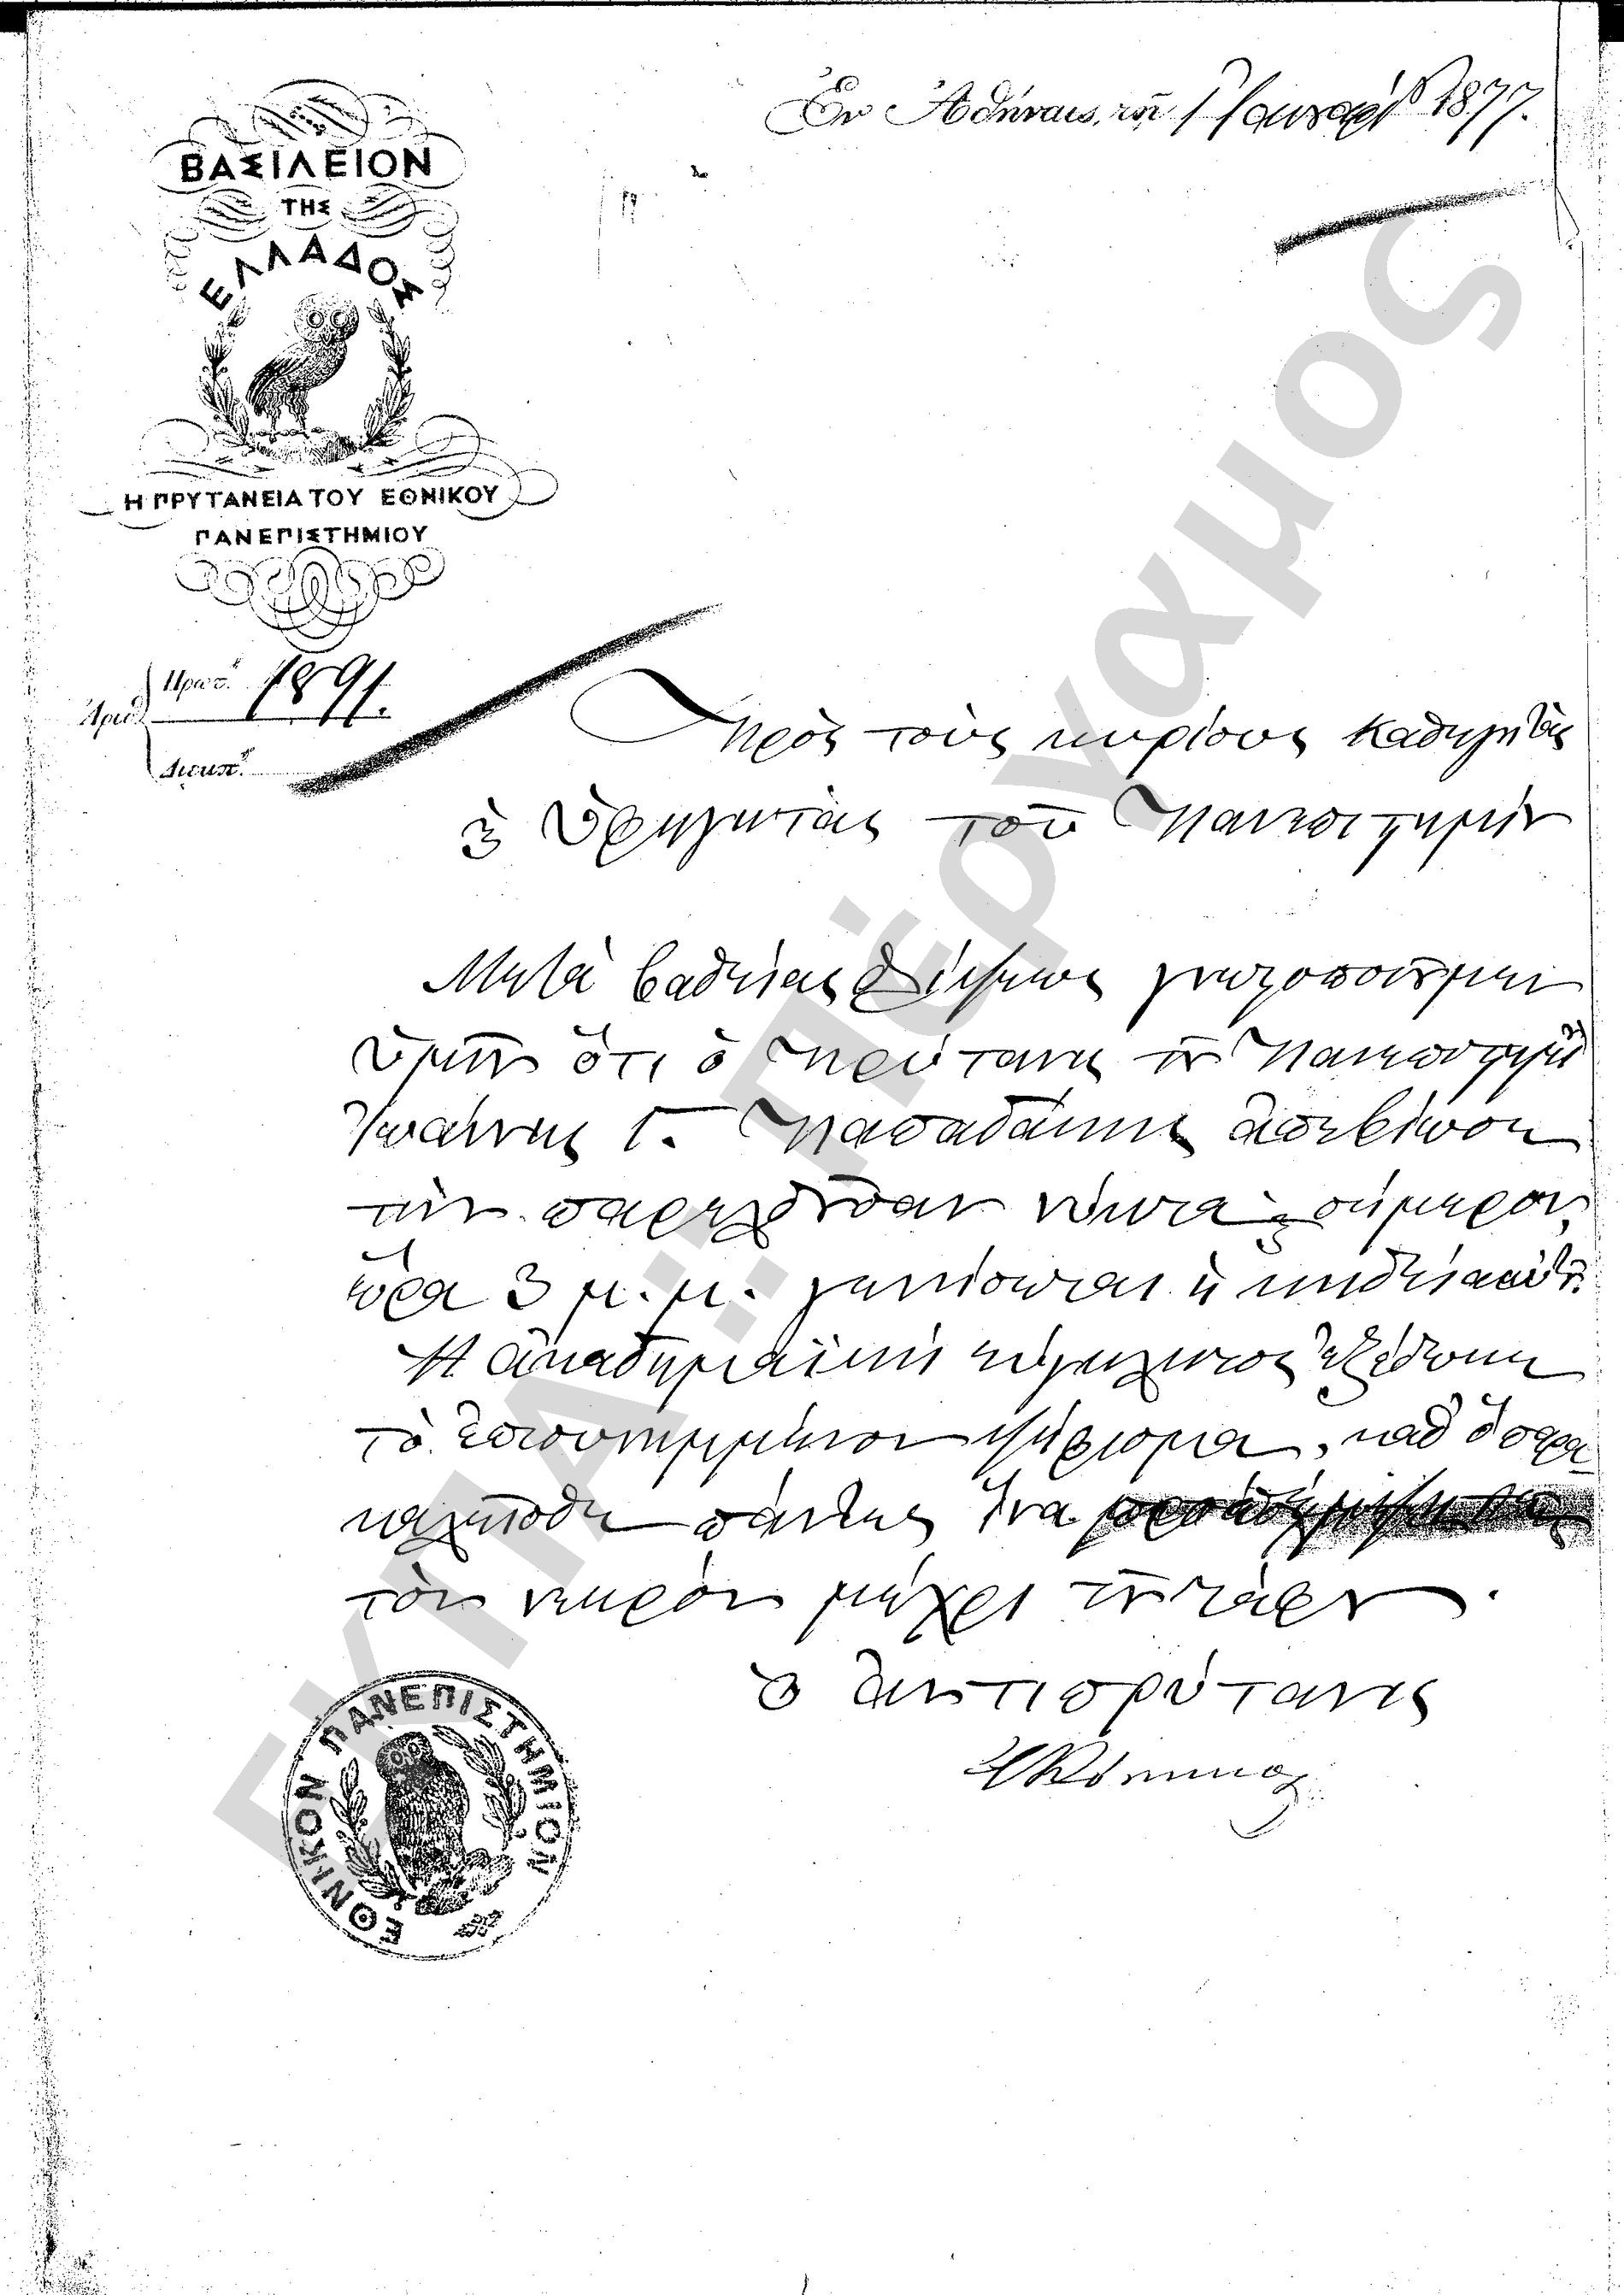 Ἐν Ἀθήναις, τῇ 1 Ἰανουαρίου 1877.
ΒΑΣΙΛΕΙΟΝ
ΤΗΣ
ΕΛΛΑΔΟΣ
Η ΠΡΥΤΑΝΕΙΑ ΤΟΥ ΕΘΝΙΚΟΥ
ΠΑΝΕΠΙΣΤΗΜΙΟΥ
Ἀριθ. Πρωτ. 1891.
Διεκπ.
Πρὸς τοὺς κυρίους Καθηγητὰς
καὶ Ὑφηγητὰς τοῦ Πανεπιστημίου
Μετὰ βαθείας θλίψεως γνωστοποιοῦμεν
ὑμῖν ὅτι ὁ Πρύτανις τοῦ Πανεπιστημίου
Ἰωάννης Γ. Παπαδάκης ἀπεβίωσεν
τὴν παρελθοῦσαν νύκτα καὶ σήμερον,
ὥρᾳ 3 μ.μ. γενήσεται ἡ κηδεία αὐτοῦ.
Ἡ ἀκαδημαϊκὴ σύγκλητος ἐξέδωκεν
τὸ ἐπισυνημμένον ψήφισμα, καθ' ὃ παρα
καλεῖσθε πάντες ἵνα
τὸν νεκρὸν μέχρι τοῦ τάφου.
Ὁ Ἀντιπρύτανις
ΕΘΝΙΚΟΝ ΠΑΝΕΠΙΣΤΗΜΙΟΝ
ΕΚΠΑ::Πέργαμος